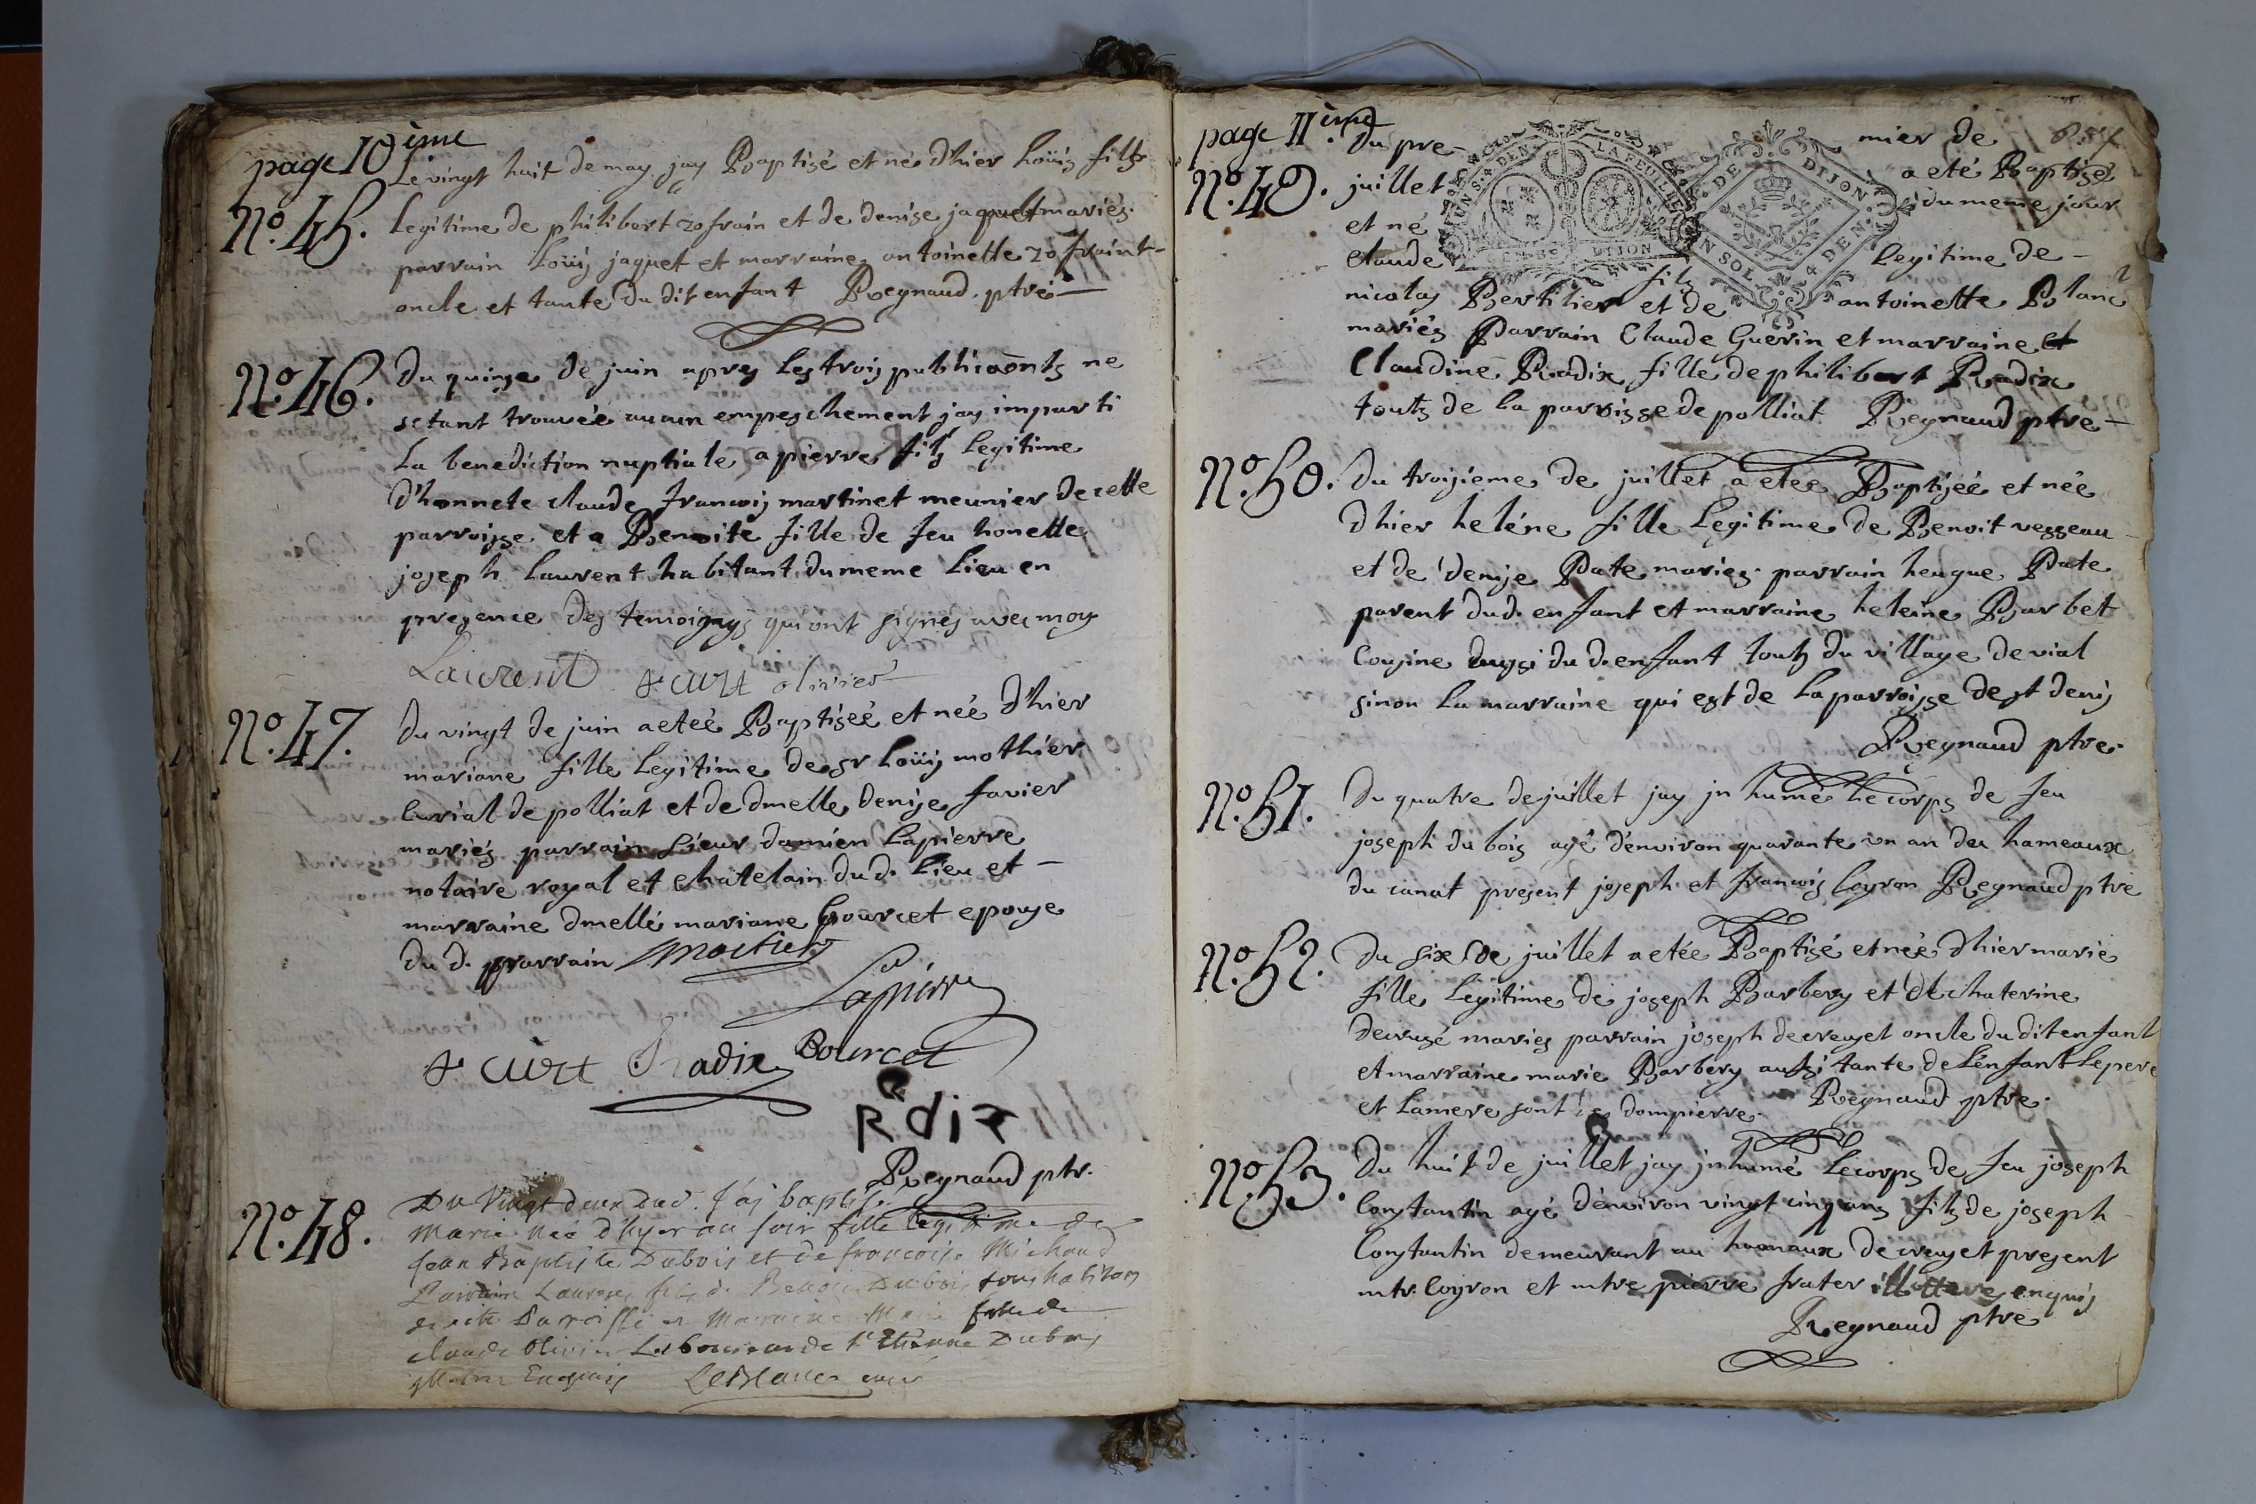 page 10ème
Le vingt huit de may jay Baptisé et né d'hier Loüis filz
No. 45. Legitime de philibert zofrain et de denise jaquet mariés.
parrain Loüis jaquet et marraine antoinette zofraint-
oncle et tante du dit enfant Regnaud ptre
No. 46. Du quinze de juin apres les trois publica͠onts ne
setant trouvée aucun empeschement jay imparti
La benediction nuptiale a pierre filz legitime
d'honnete claude francois martinet meunier de cette
parroisse et a Benoite fille de feu honette
joseph Laurent habitant du meme Lieu en
presence des temoigngs qui ont signés avec moy
Laurent F curt olivier
No. 47. du vingt de juin a eteé Baptiseé et née d'hier
mariane fille Legitime de sr Loüis mothier
Curial de polliat et de dmelle denise favier
mariés parrain sieur damien Lapierre
notaire royal et chatelain du d. Lieu et -
marraine dmelle mariane bourcet epouse
du d. parrain Motier
Lapierre
F curt Radix Bourcet
Rdix
Regnaud ptr.
No. 48. Du Vingt deux dud. j'ai baptisé
Marie Née d'hyer au soir fille legitime de
Jean Baptiste Dubois et de francoise Michaud
Parrain Laurent fils de Dubois tous habitans
de cette Parroisse et Marraine Marie fille de
claude Olivier Dubois
Enquis LeBlanc curé
page 11ème
du pre- mier de
No. 49. juillet a eté Baptisé
et né du meme jour
Claude filz Legitime de -
nicolas Berthier et de antoinette Blanc
mariés Parrain Claude Guerin et marraine et
Claudine Radix fille de philibert Radix
touts de la parroisse de polliat Regnaud ptre -
DIJON
LA FEUILLE
UN SOL 4 DEN
No. 50. du troisieme de juillet a etée Baptiséé et née
d'hier heléne fille Legitime de Benoit vesseau
et de denise Pate mariés parrain heugue Pate
parent dud. enfant et marraine heleine Barbet
Cousine aussi du d. enfant touts du village de vial
sinon La marraine qui est de La parroisse de st denis
Regnaud ptre.
No. 51. Du quatre de juillet jay jnhumé Le corps de feu
joseph du bois agé d'environ quarante un an du hameaux
du canat present joseph et francois Coyron Regnaud ptre
No. 52. Du six de juillet a etée Baptisé et née d'hier marie
fille Legitime de joseph Barbery et de chaterine
decrusé mariés parrain joseph decreuset oncle du dit enfant
et marraine marie Barbery aussi tante de L'enfant Le pere
et La mere sont de dompierre. Regnaud ptre.
No. 53. Du huit de juillet jay jnhumé Le corps de feu joseph
Constantin agé d'environ vingt cinq ans filz de joseph
Constantin demeurant au hameaux de creuset present
mtr. Coyron et mtre pierre frater illettere enquis
Regnaud ptre